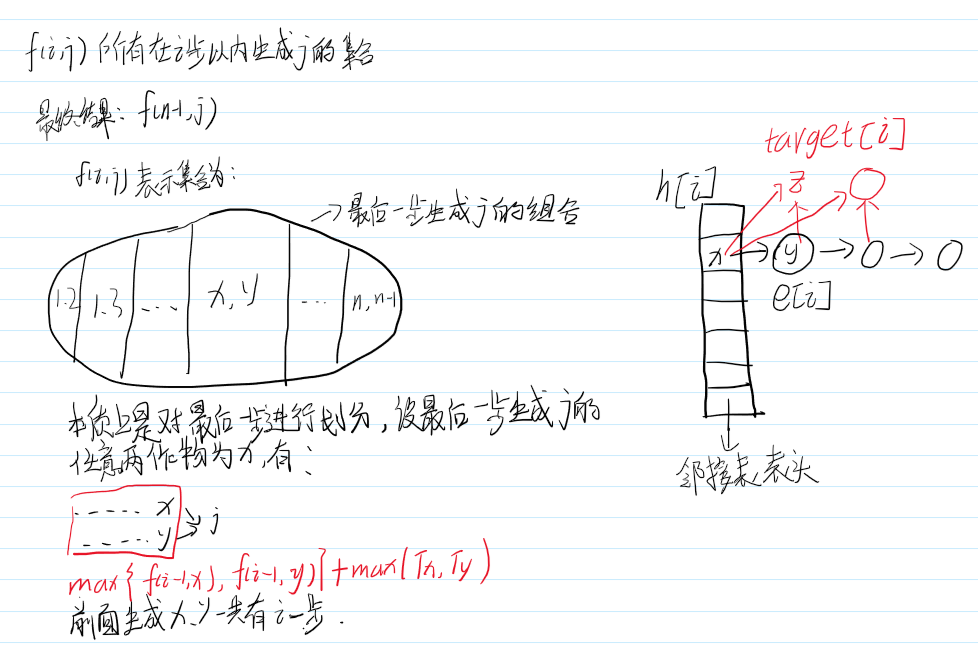 f(i,j) 所有在i步以内生成j的集合
最终结果: f(n-1,j)
f(i,j) 表示集合为:
→最后一步生成j的组合
1.2 1.3 ... x,y ... n,n-1
本质上是对最后一步进行划分,设最后一步生成j的
任意两作物为x,有:
...... x
...... y
j
max{f(i-1,x), f(i-1,y)}+max(Tx,Ty)
前面生成x、y一共有i-1步.
target[i]
h[i]
z
x → y → O → O
e[i]
邻接表表头